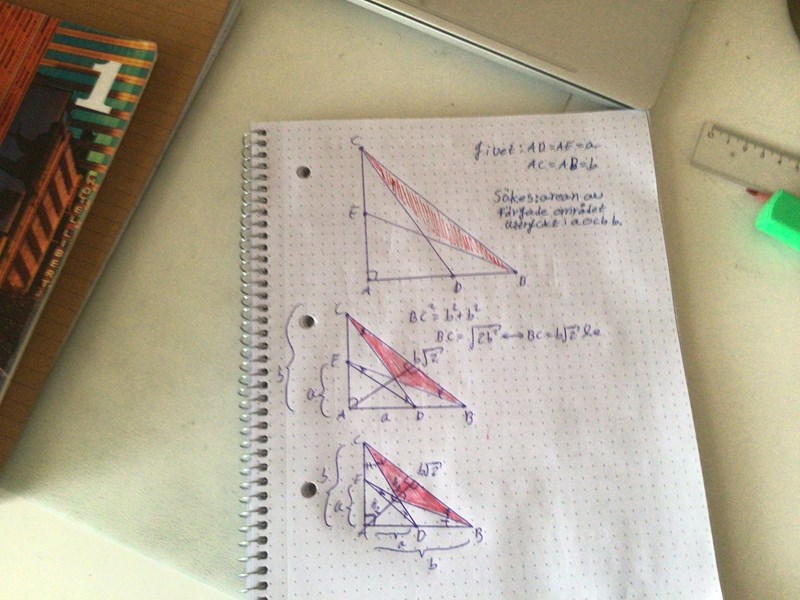 1
C
Givet: AD=AE=a
AC=AB=b
E
Sökes: arean av
färgade området
uttryckt i a och b.
A
D
B
C
BC²=b²+b²
BC=√2b² ↔ BC=b√2 le
b
E
b√2
a
A
a
D
B
C
b
E
b√2
a
A
D
B
a
b